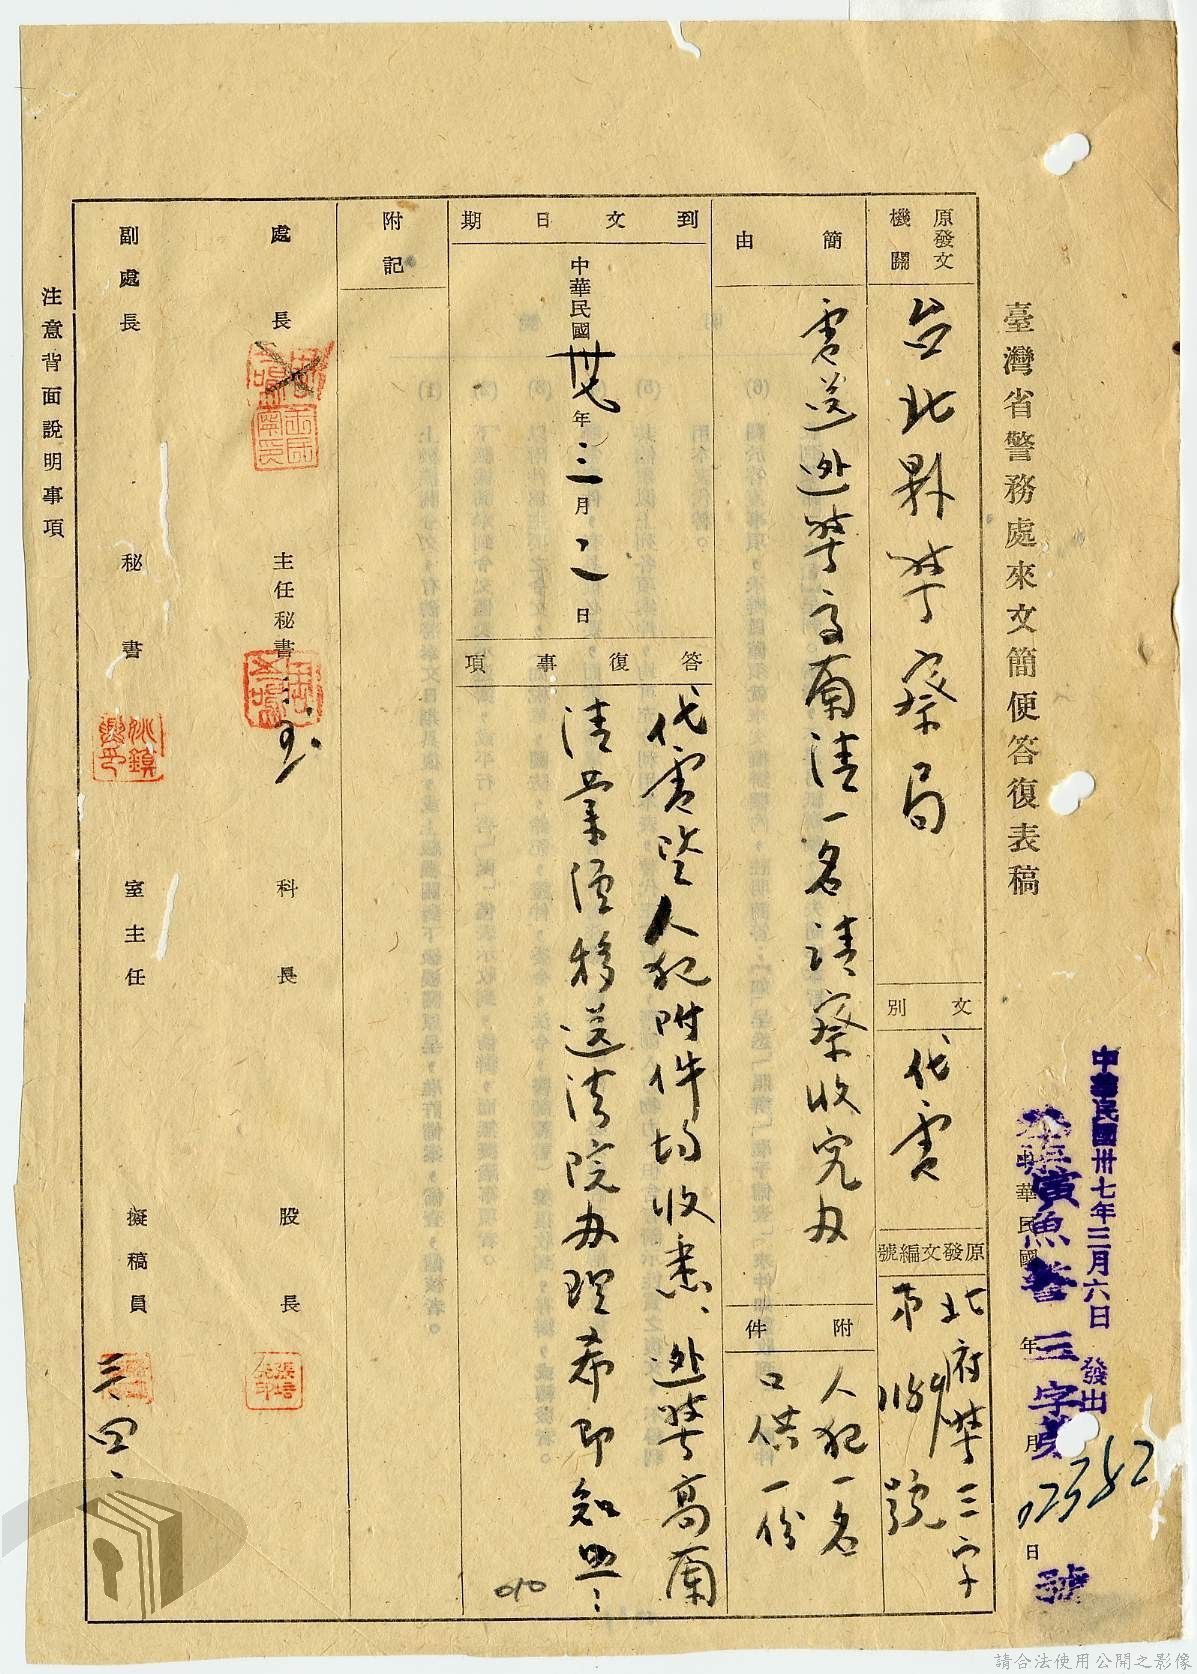 臺灣省警務處來文簡便答復表稿
中華民國卅七年三月六日發出
中華民國 年 月 日
字第 02382 號
原發文機關
台北縣警察局
文別
代電
原發文編號
北府警三字
第 號
簡由
電送逃警高蘭清一名請察收究办
附件
人犯一名
口供一份
到文日期
中華民國卅七年三月二日
答復事項
代電暨人犯附件均收悉、逃警高蘭
清業經移送法院办理希即知照
010
附記
處長
主任秘書
科長
股長
副處長
秘書
室主任
擬稿員
三、四、
注意背面說明事項
請合法使用公開之影像